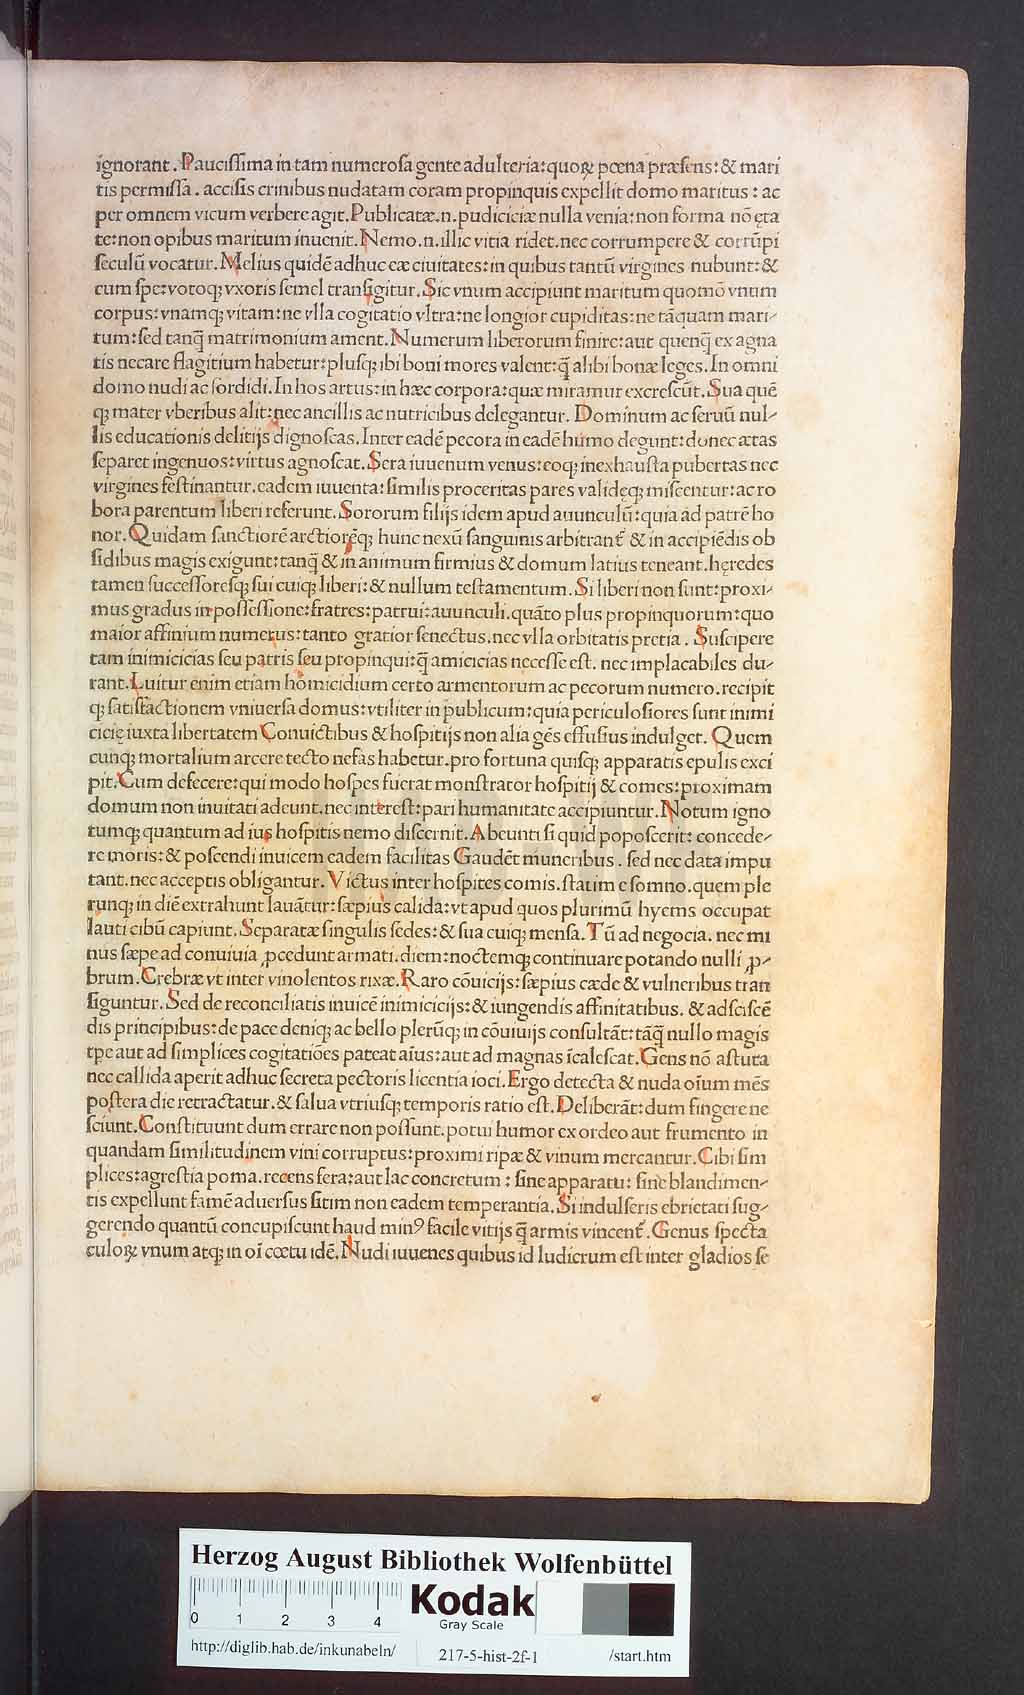 ignorant. Paucissima in tam numerosa gente adulteria: quoꝝ pœna præsens: & mari
tis permissa. accisis crinibus nudatam coram propinquis expellit domo maritus: ac
per omnem vicum verbere agit. Publicatæ .n. pudiciciæ nulla venia: non forma nō ęta
te: non opibus maritum inuenit. Nemo .n. illic vitia ridet. nec corrumpere & corrūpi
seculū vocatur. Melius quidē adhuc eæ ciuitates: in quibus tantū virgines nubunt: &
cum spe: votoqꝫ vxoris semel transigitur. Sic vnum accipiunt maritum quomō vnum
corpus: vnamqꝫ vitam: ne vlla cogitatio vltra: ne longior cupiditas: ne tāquam mari-
tum: sed tanq̄ matrimonium ament. Numerum liberorum finire: aut quenq̄ ex agna
tis necare flagitium habetur: plusqꝫ ibi boni mores valent: q̄ alibi bonæ leges. In omni
domo nudi ac sordidi. In hos artus: in hæc corpora: quæ miramur excrescūt. Sua quē
qꝫ mater vberibus alit: nec ancillis ac nutricibus delegantur. Dominum ac seruū nul-
lis educationis delitijs dignoscas. Inter eadē pecora in eadē humo degunt: donec ætas
separet ingenuos: virtus agnoscat. Sera iuuenum venus: eoqꝫ inexhausta pubertas nec
virgines festinantur. eadem iuuenta: similis proceritas pares valideqꝫ miscentur: ac ro
bora parentum liberi referunt. Sororum filijs idem apud auunculū: quia ad patrē ho
nor. Quidam sanctiorē arctiorēqꝫ hunc nexū sanguinis arbitrant̄ & in accipiēdis ob
sidibus magis exigunt: tanq̄ & in animum firmius & domum latius teneant. hęredes
tamen successoresqꝫ sui cuiqꝫ liberi: & nullum testamentum. Si liberi non sunt: proxi-
mus gradus in possessione: fratres: patrui: auunculi. quāto plus propinquorum: quo
maior affinium numerus: tanto gratior senectus. nec vlla orbitatis pretia. Suscipere
tam inimicicias seu patris seu propinqui: q̄ amicicias necesse est. nec implacabiles du-
rant. Luitur enim etiam homicidium certo armentorum ac pecorum numero. recipit
qꝫ satisfactionem vniuersa domus: vtiliter in publicum: quia periculosiores sunt inimi
cicię iuxta libertatem Conuictibus & hospitijs non alia gēs effusius indulget. Quem
cunqꝫ mortalium arcere tecto nefas habetur. pro fortuna quisqꝫ apparatis epulis exci
pit. Cum defecere: qui modo hospes fuerat monstrator hospitij & comes: proximam
domum non inuitati adeunt. nec interest: pari humanitate accipiuntur. Notum igno
tumqꝫ quantum ad ius hospitis nemo discernit. Abeunti si quid poposcerit: concede-
re moris: & poscendi inuicem eadem facilitas Gaudēt muneribus. sed nec data impu
tant. nec acceptis obligantur. Victus inter hospites comis. statim e somno. quem ple
runqꝫ in diē extrahunt lauātur: sæpius calida: vt apud quos plurimū hyems occupat
lauti cibū capiunt. Separatæ singulis sedes: & sua cuiqꝫ mensa. Tū ad negocia. nec mi
nus sæpe ad conuiuia ꝓcedunt armati. diem: noctemqꝫ continuare potando nulli ꝓ-
brum. Crebræ vt inter vinolentos rixæ. Raro cōuicijs: sæpius cæde & vulneribus tran
siguntur. Sed de reconciliatis inuicē inimicicijs: & iungendis affinitatibus. & adsciscē
dis principibus: de pace deniqꝫ ac bello plerūqꝫ in cōuiuijs consultāt: tāq̄ nullo magis
tpe aut ad simplices cogitatiōes pateat aīus: aut ad magnas īcalescat. Gens nō astuta
nec callida aperit adhuc secreta pectoris licentia ioci. Ergo detecta & nuda oīum mēs
postera die retractatur. & salua vtriusqꝫ temporis ratio est. Deliberāt: dum fingere ne
sciunt. Constituunt dum errare non possunt. potui humor ex ordeo aut frumento in
quandam similitudinem vini corruptus: proximi ripæ & vinum mercantur. Cibi sim
plices: agrestia poma. recens fera: aut lac concretum: sine apparatu: sine blandimen-
tis expellunt famē aduersus sitim non eadem temperantia. Si indulseris ebrietati sug-
gerendo quantū concupiscunt haud minꝰ facile vitijs q̄ armis vincent̄. Genus specta
culoꝝ vnum atqꝫ in oī cœtu idē. Nudi iuuenes quibus id ludicrum est inter gladios se
Herzog August Bibliothek Wolfenbüttel
0 1 2 3 4
Kodak
Gray Scale
http://diglib.hab.de/inkunabeln/ 217-5-hist-2f-1 /start.htm